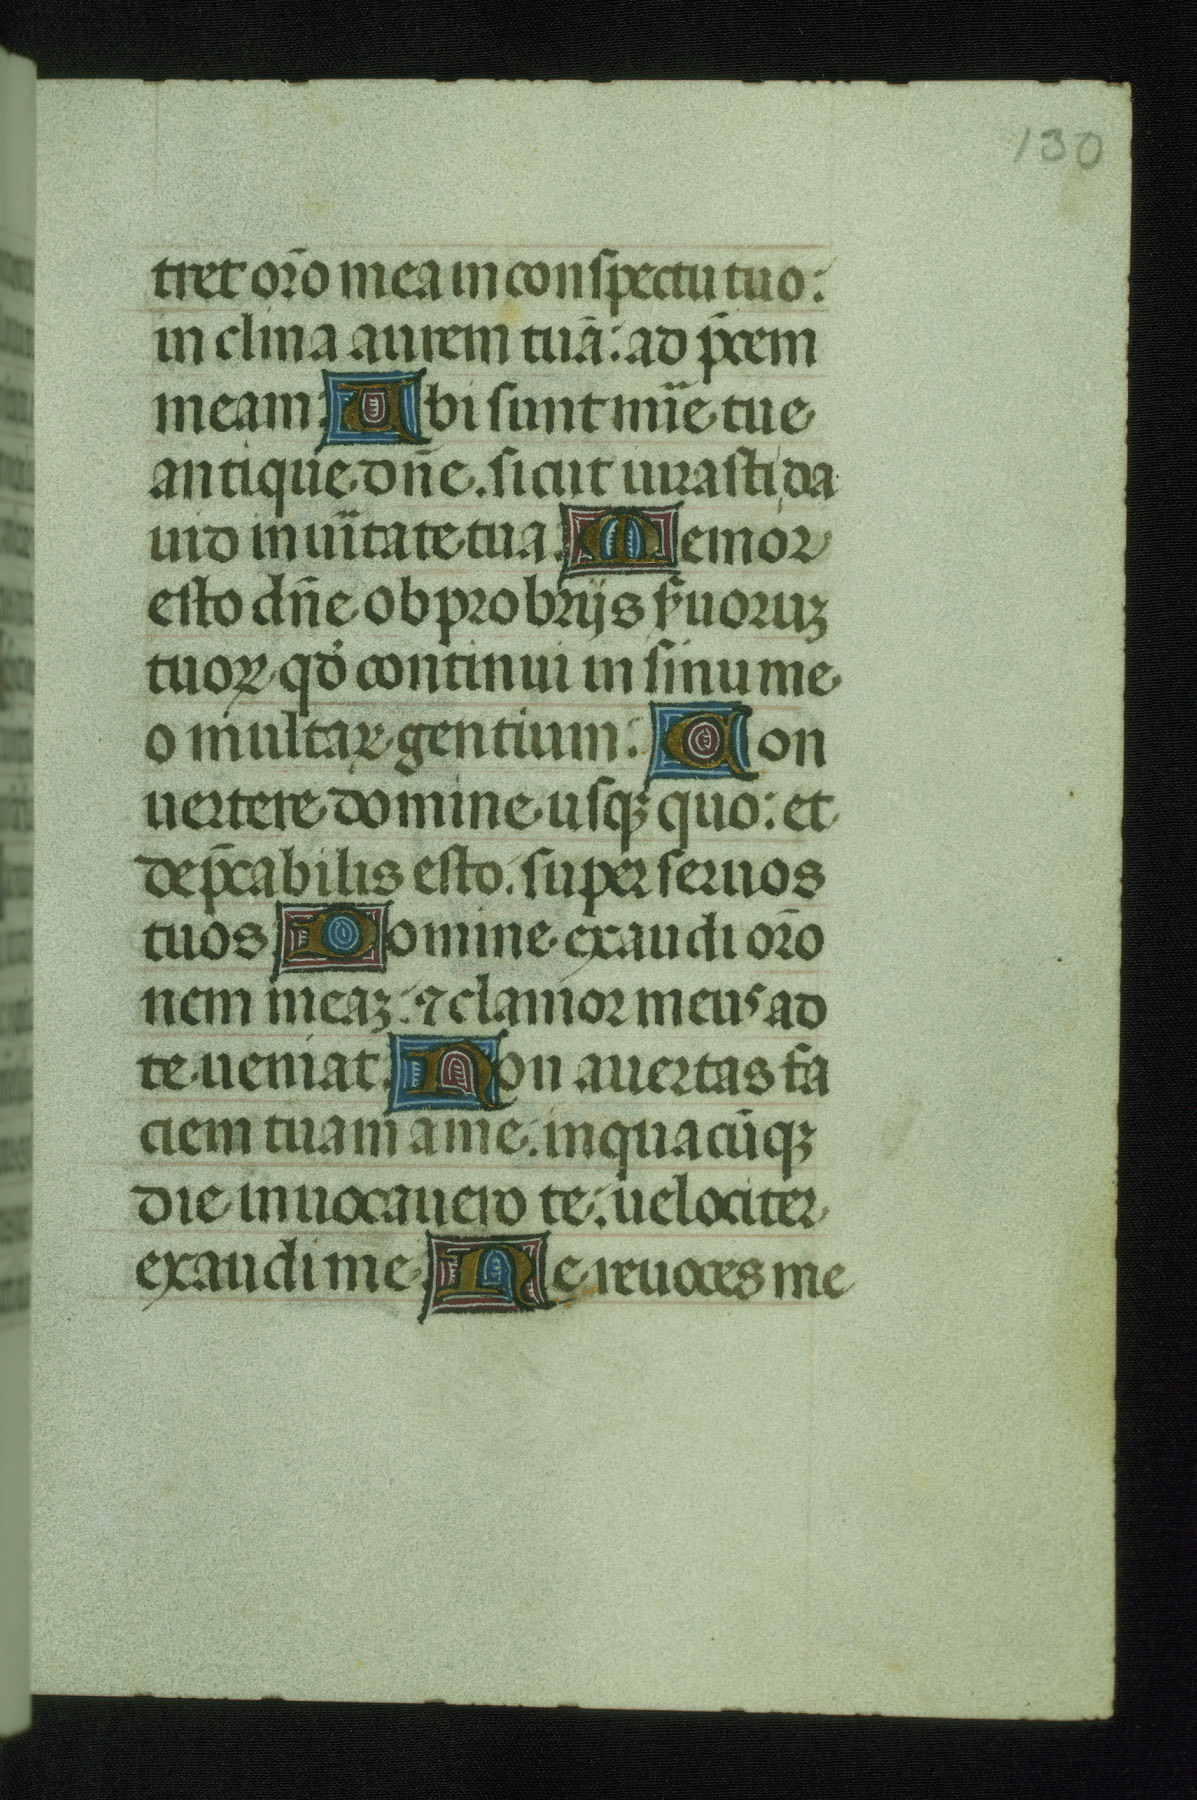 130
tret or̄o mea in conspectu tuo:
in clina aurem tuā: ad p̄cem
meam: Ubi sunt mīe tue
antique dn̄e. sicut iurasti da
uid in uītate tua. Memor
esto dn̄e obprobrijs s̄uoruꝫ
tuoꝝ qđ continui in sinu me
o multaꝝ gentium: Con
uertere domine usqꝫ quo: et
dep̄cabilis esto. super seruos
tuos Domine exaudi or̄o
nem meaꝫ: ⁊ clamor meus ad
te ueniat. Non auertas fa
ciem tuam a me. in quacūqꝫ
die inuocauero te: uelociter
exaudi me. Ne reuoces me